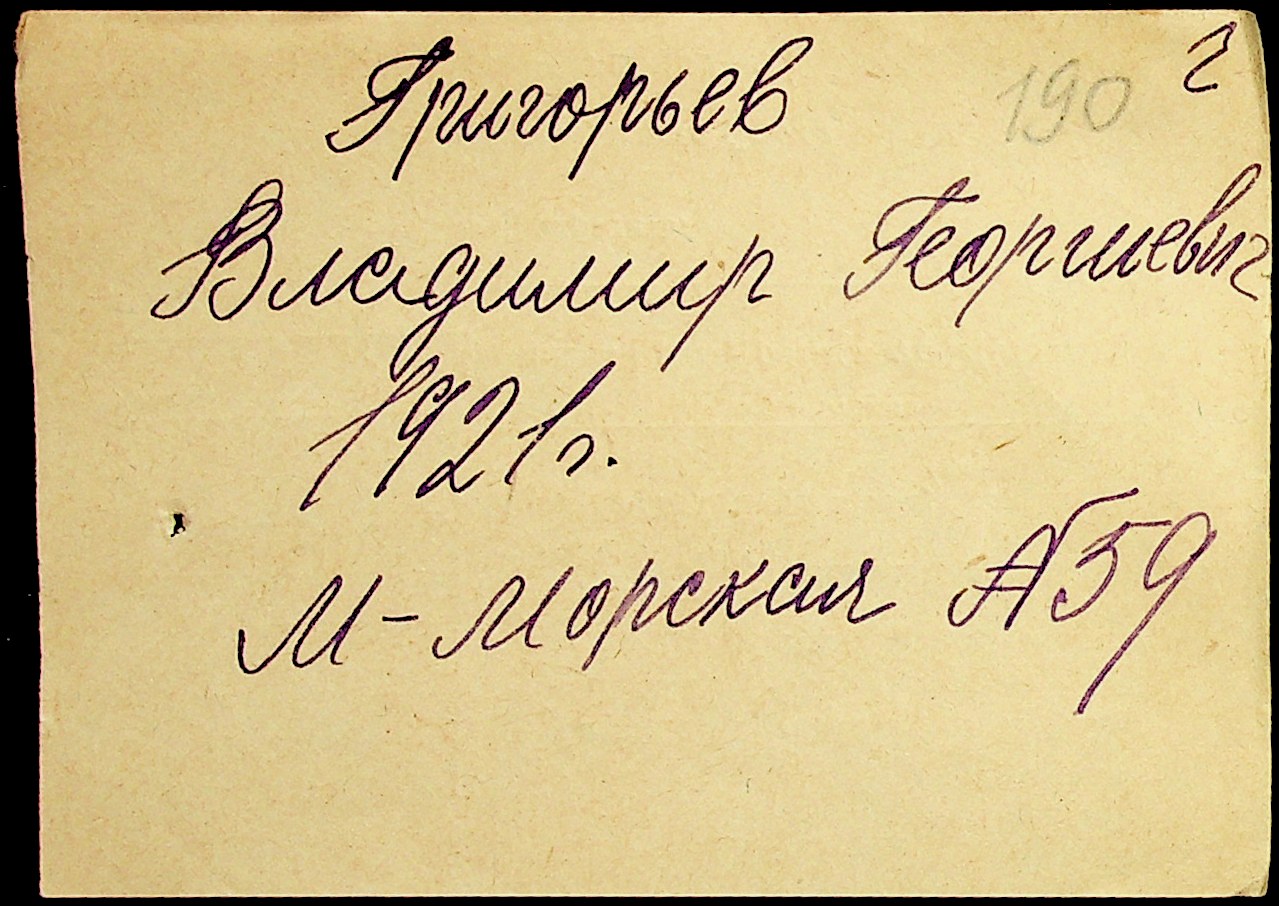 г
190
Григорьев
Владимир Георгиевич
1921г.
М-Морская №59